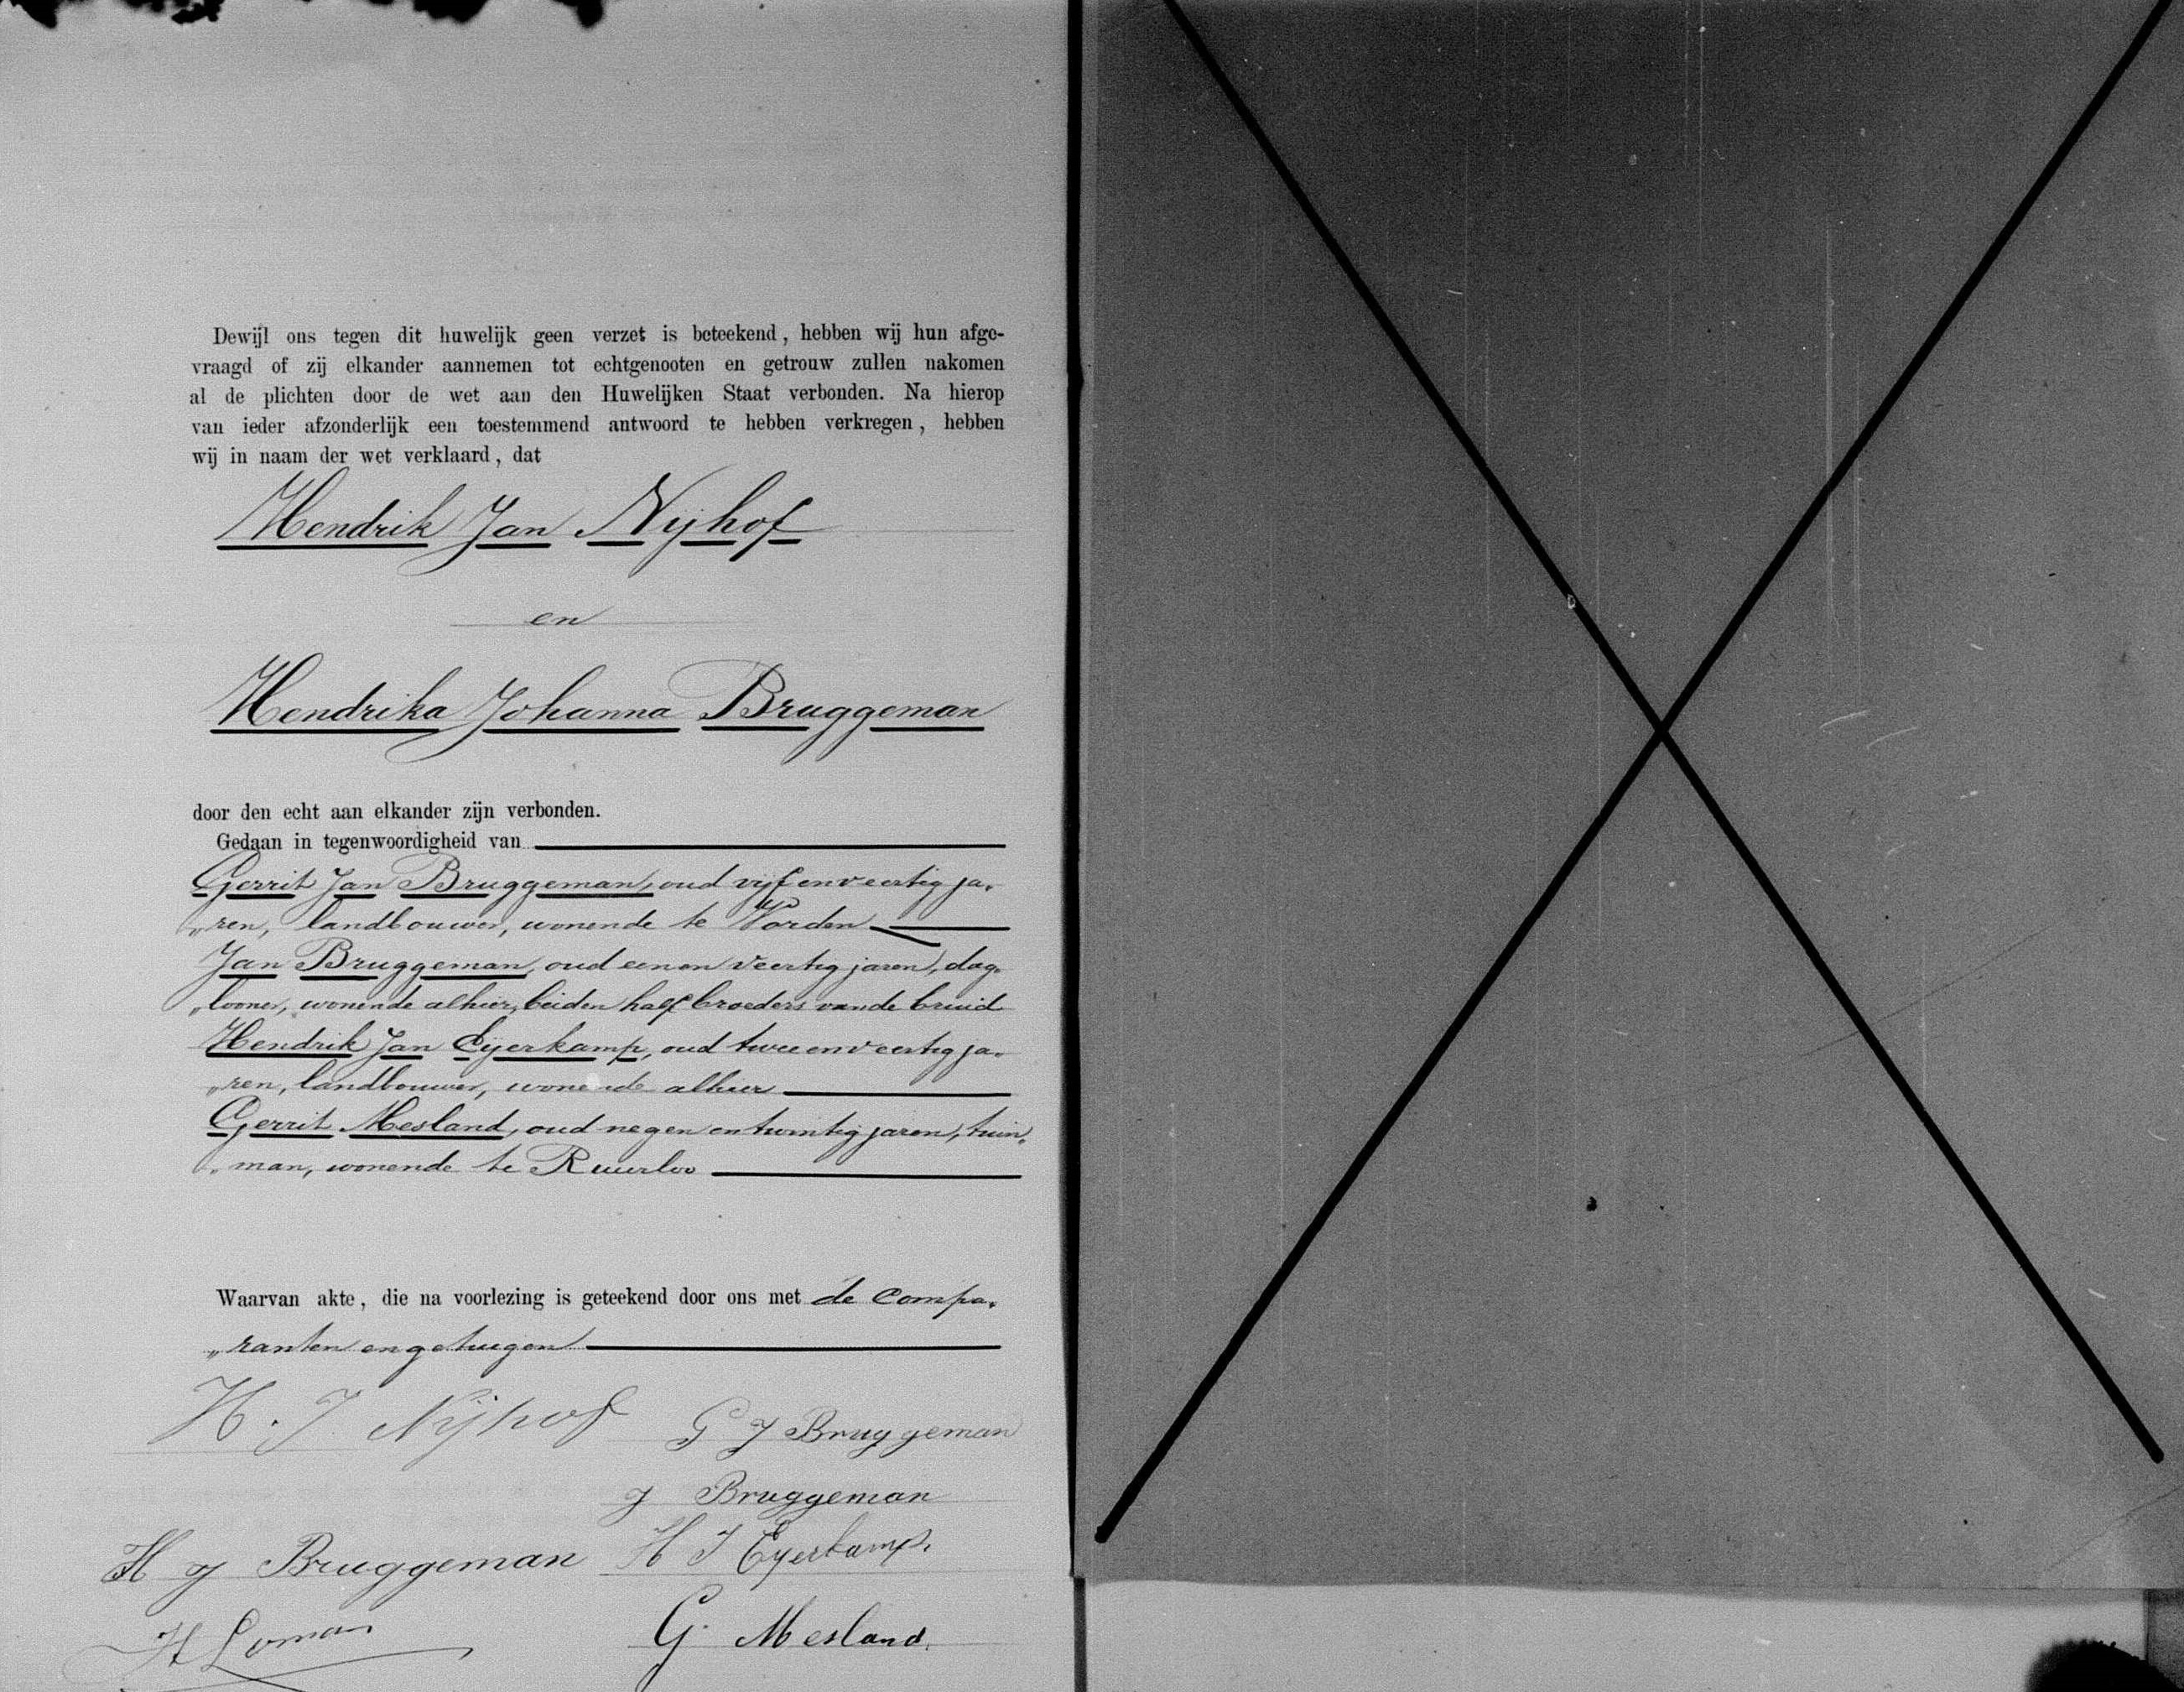 Dewijl ons tegen dit huwelijk geen verzet is beteekend, hebben wij hun afge-
vraagd of zij elkander aannemen tot echtgenooten en getrouw zullen nakomen
al de plichten door de wet aan den Huwelijken Staat verbonden. Na hierop
van ieder afzonderlijk een toestemmend antwoord te hebben verkregen, hebben
wij in naam der wet verklaard, dat
Hendrik Jan Nijhof
en
Hendrika Johanna Bruggeman
door den echt aan elkander zijn verbonden.
Gedaan in tegenwoordigheid van
Gerrit Jan Bruggeman, oud vijf en veertig ja„
„ren, landbouwer, wonende te Vorden
Jan Bruggeman, oud een en veertig jaren, dag„
„looner, wonende alhier, beiden half broeders van de bruid
Hendrik Jan Eijerkamp, oud twee en veertig ja„
„ren, landbouwer, wonende alhier
Gerrit Mesland, oud negen en twintig jaren, tuin„
„man, wonende te Ruurloo
Waarvan akte, die na voorlezing is geteekend door ons met de compa„
„ranten en getuigen
H. J. Nijhof
G J Bruggeman
J Bruggeman
H J Bruggeman
H J Eyerkamp.
H Loman
G. Mesland.